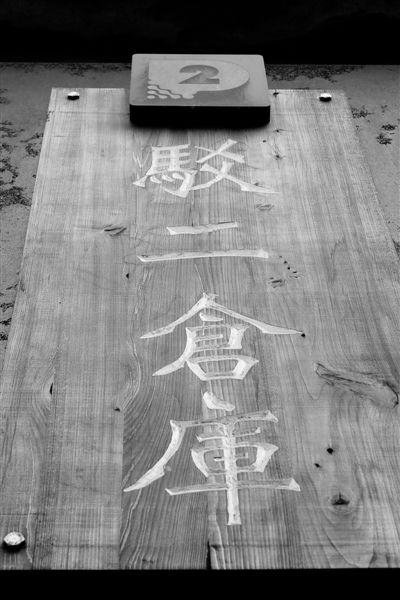 2
駁二倉庫